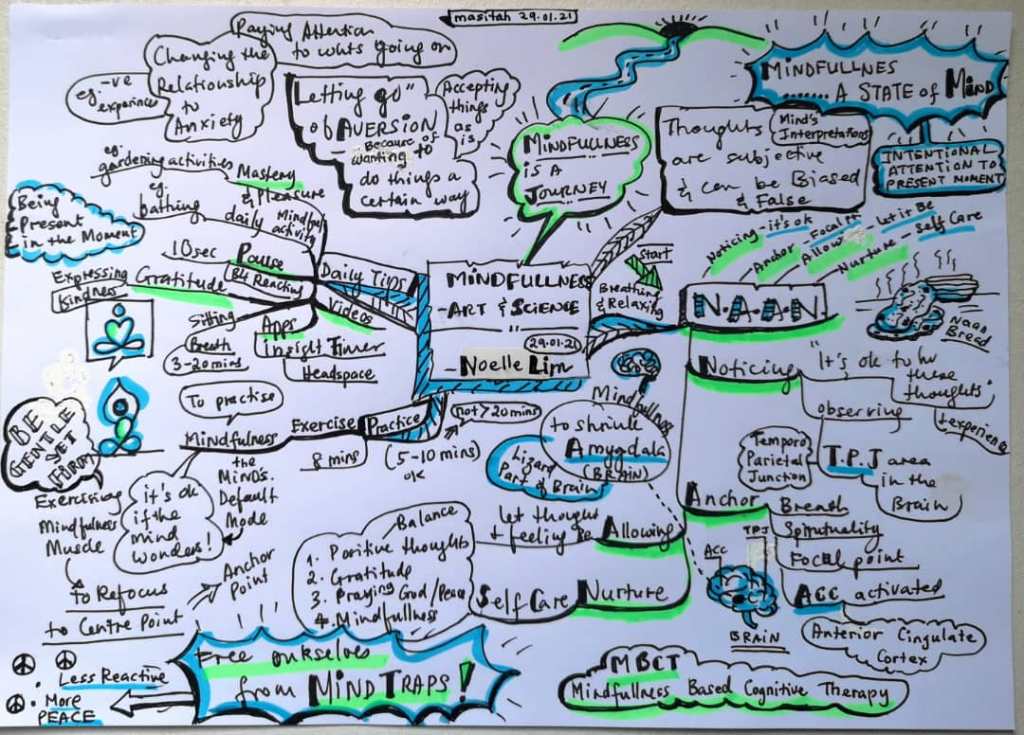 masitah 29.01.21
Paying Attention
to whts going on
Changing the
Relationship
to
Anxiety
eg. -ve
experiences
"Letting go"
of AVERSION
Because of
wanting to
do things a
certain way
Accepting
things
as
is
MINDFULLNESS
IS A
JOURNEY
Thoughts
Mind's
Interpretations
are subjective
& can be Biased
& False
MINDFULLNES
....... A STATE of MIND
INTENTIONAL
ATTENTION TO
PRESENT MOMENT
eg.
gardening activities
Mastery
& Pleasure
eg.
bathing
daily Mindful
activity
Being
Present
in the Moment
10sec Pause
B4 Reacting
Expressing Gratitude
Kindness
Daily Tips
Videos
Sitting
Breath
3-20mins
Apps
insight Timer
Headspace
MINDFULLNESS
- ART & SCIENCE
29.01.21
Noelle Lim
Start
Breathing
& Relaxing
N.A.A.N.
Noticing - it's ok
Anchor - Focal Pt
Allow - let it Be
Nurture - Self Care
NAAN
BREAD
Noticing
"It's ok to hv
these
thoughts"
+ experience
observing
T.P.J area
in the
Brain
Temporo
Parietal
Junction
Anchor
Breath
Spirituality
Focal point
ACC activated
Anterior Cingulate
Cortex
TPJ
ACC
BRAIN
Mindfullness
to shrink
Amygdala
(BRAIN)
Lizard
Part of Brain
Allowing
let thought
+ feeling Be
Nurture
Self Care
Balance
1. Positive thoughts
2. Gratitude
3. Praying God/Peace
4. Mindfullness
Practice
not > 20mins
(5-10 mins)
ok
Exercise
8 mins
To practise
Mindfulness
the
MINDS.
Default
Mode
it's ok
if the
mind
wonders!
BE
GENTLE
YET
FIRM
Exercising
Mindfulness
Muscle
to Refocus
to Centre Point
Anchor
Point
Free ourselves
from MIND TRAPS!
Less Reactive
. More
PEACE
MBCT
Mindfullness Based Cognitive Therapy